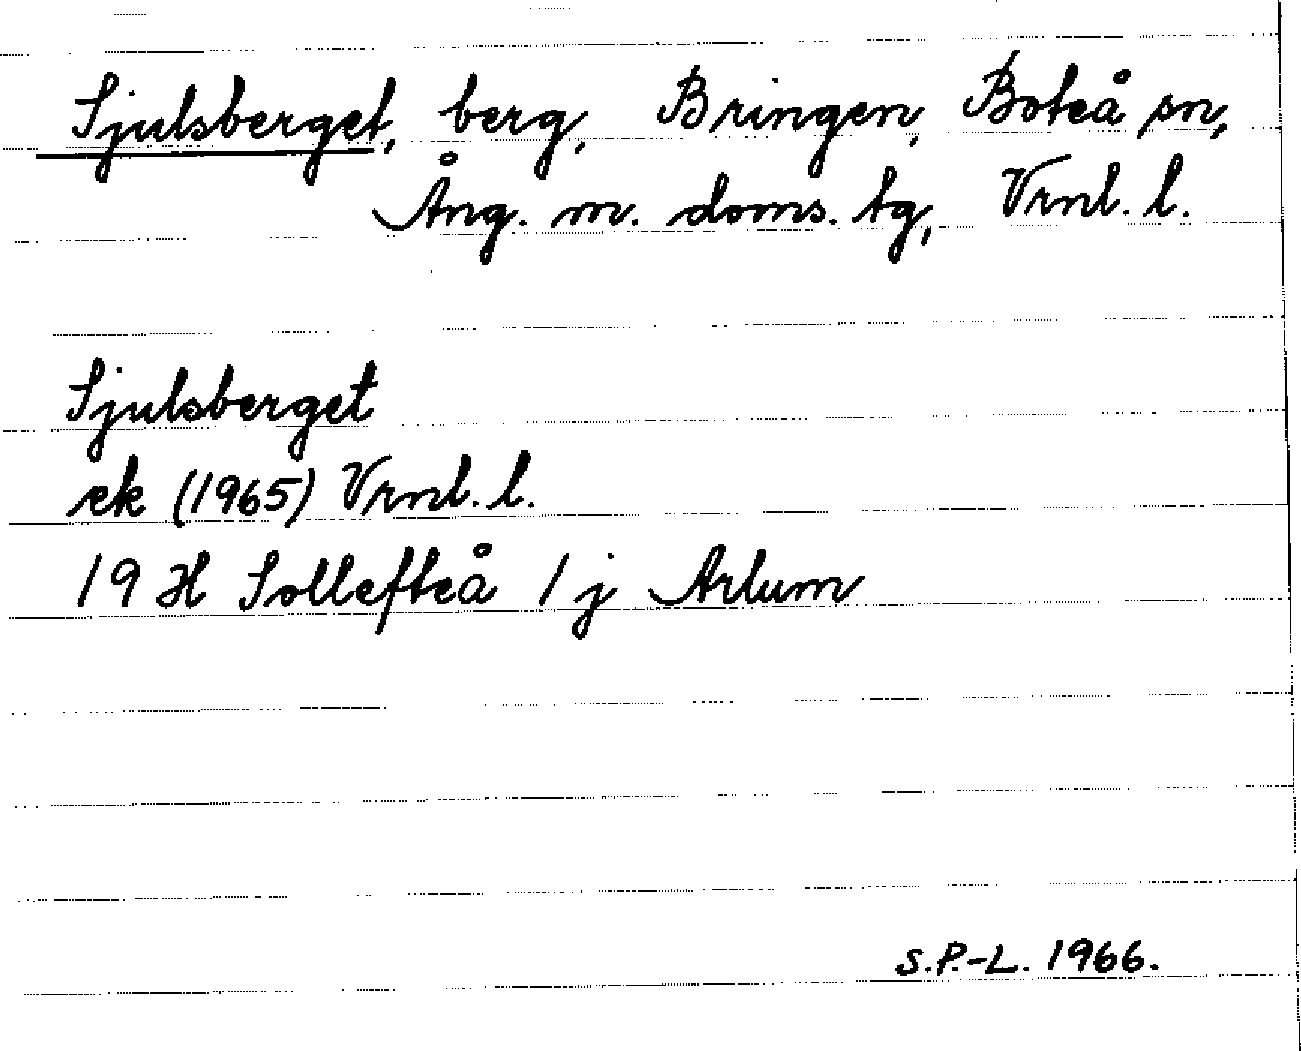 Sjulsberget, berg, Bringen, Boteå sn,
Ång. m. doms. tg, Vrnl. l.
Sjulsberget
ek (1965) Vrnl. l.
19 H Sollefteå 1 j Arlum
S.P.-L. 1966.